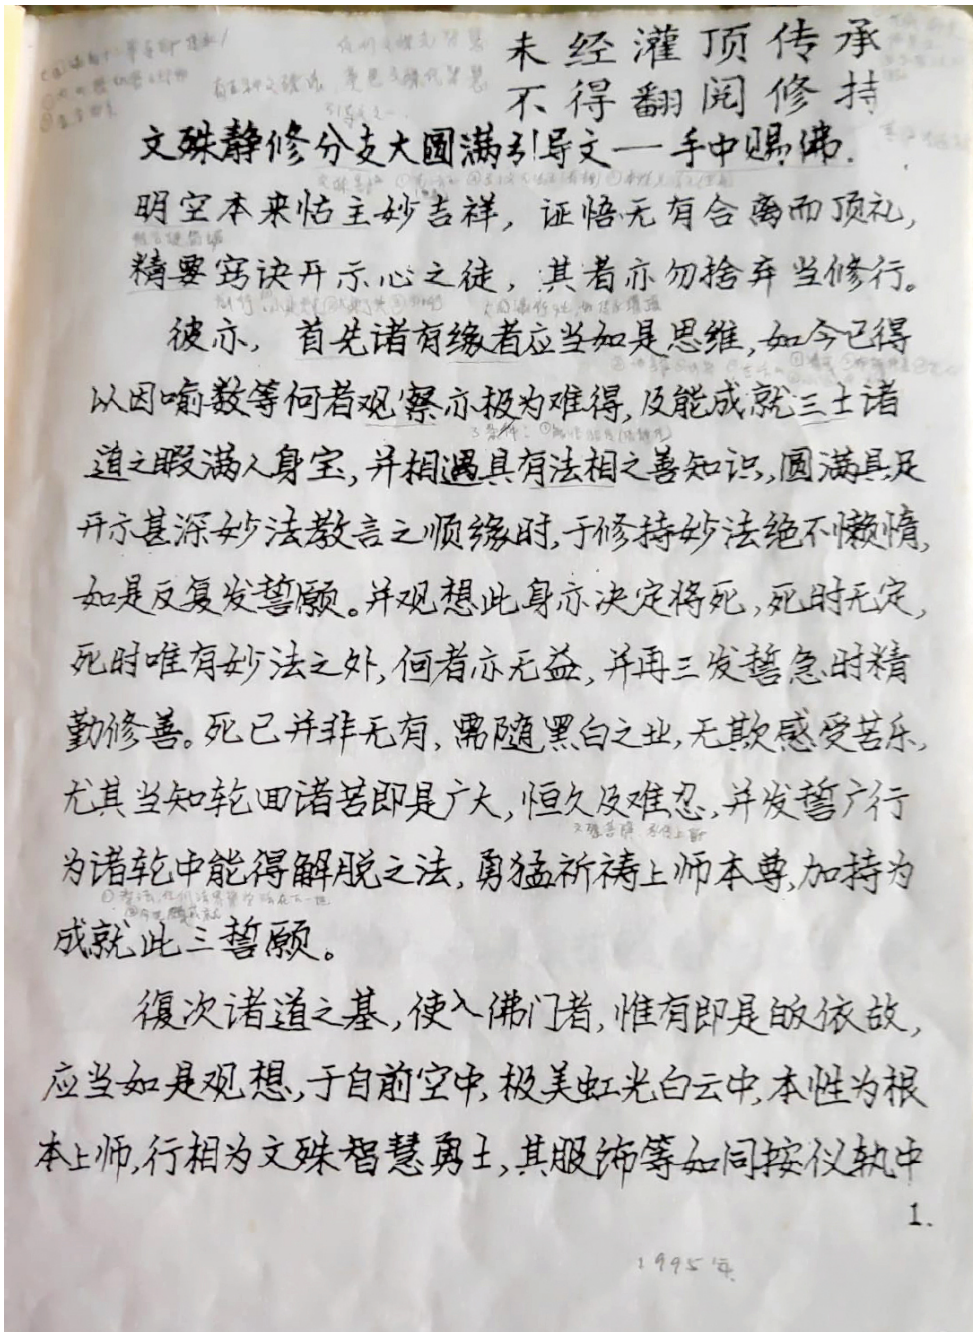 未经灌顶传承
不得翻阅修持
文殊静修分支大圆满引导文—手中赐佛.
明空本来怙主妙吉祥，证悟无有合离而顶礼，
精要窍诀开示心之徒，其者亦勿捨弃当修行。
彼亦，首先诸有缘者应当如是思维，如今已得
以因喻数等何者观察亦极为难得，及能成就三士诸
道之暇满人身宝，并相遇具有法相之善知识，圆满具足
开示甚深妙法教言之顺缘时，于修持妙法绝不懒惰，
如是反复发誓愿。并观想此身亦决定将死，死时无定，
死时唯有妙法之外，何者亦无益，并再三发誓急时精
勤修善。死已并非无有，需随黑白之业，无欺感受苦乐，
尤其当知轮回诸苦即是广大，恒久及难忍，并发誓广行
为诸轮中能得解脱之法，勇猛祈祷上师本尊，加持为
成就此三誓愿。
復次诸道之基，使入佛门者，惟有即是皈依故，
应当如是观想，于自前空中，极美虹光白云中，本性为根
本上师，行相为文殊智慧勇士，其服饰等如同按仪轨中
1.
1995年